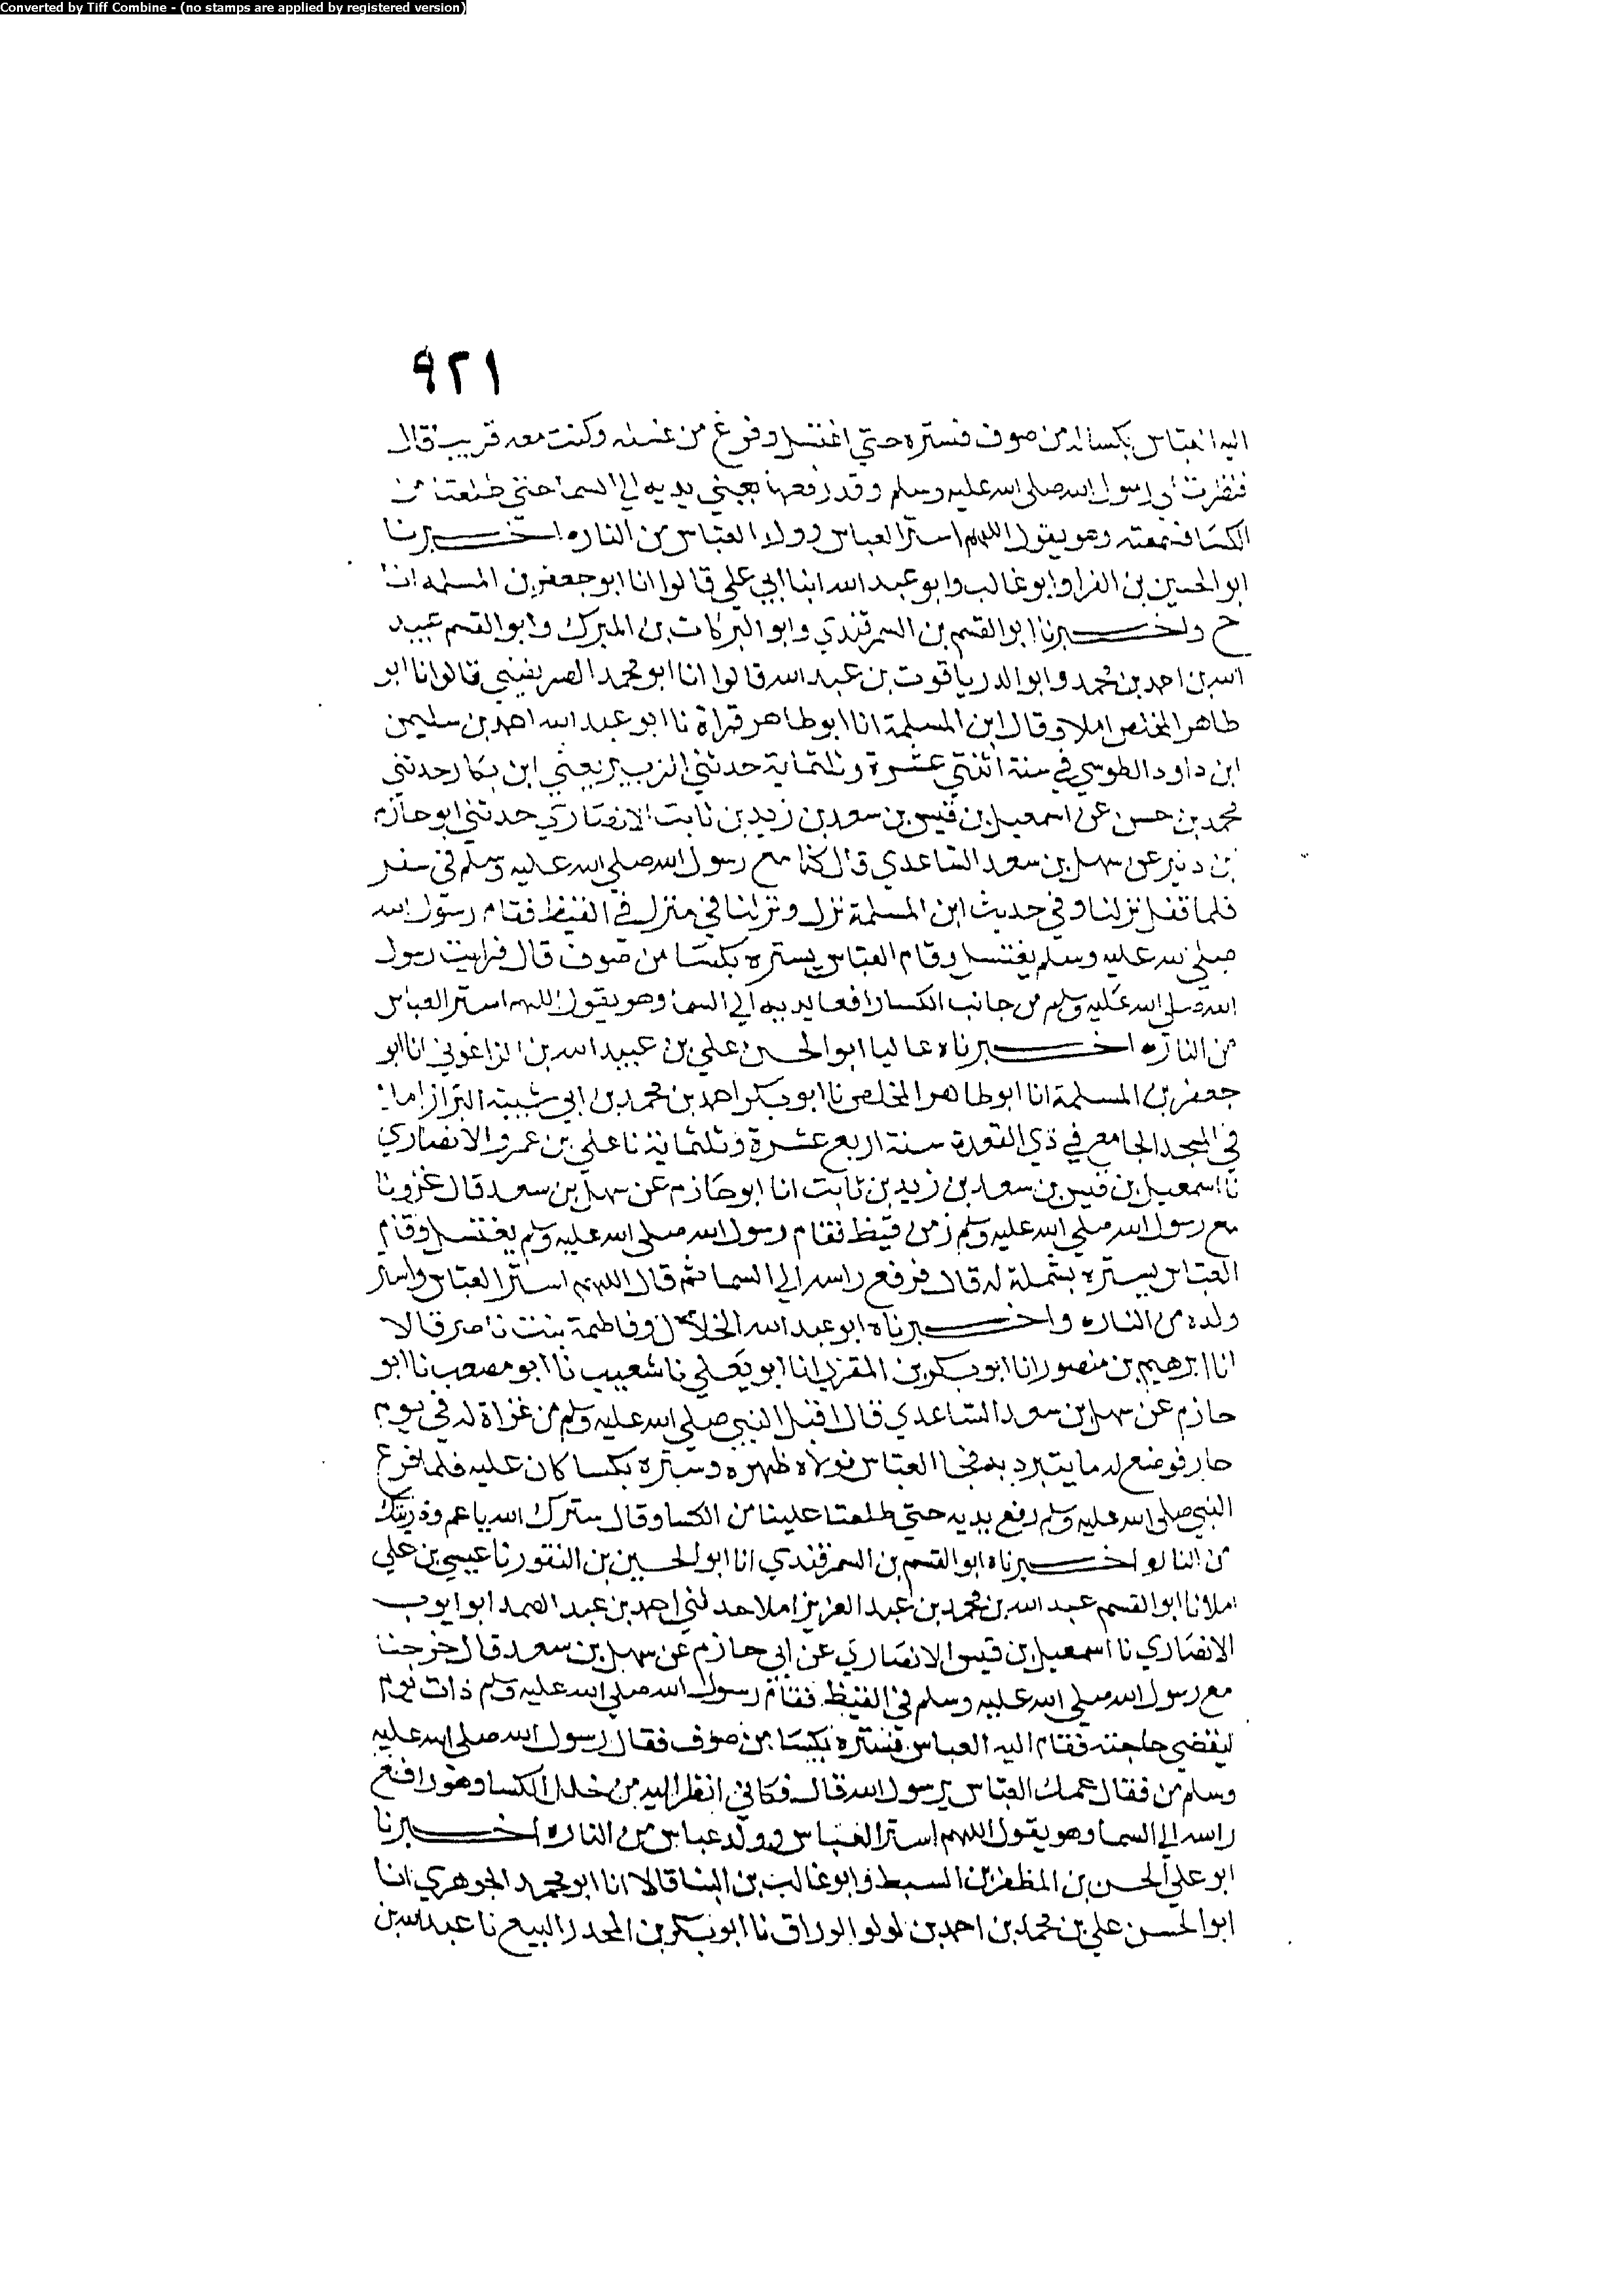 Converted by Tiff Combine - (no stamps are applied by registered version)
٩٢١
اليه العباس بكسا له من صوف فستره حتي اغتسل وفرغ من غسله وكنت معه قريب قال
فنظرت الي رسول الله صلى الله عليه وسلم وقد رفعهما يعني يديه الي السما حتي طلعتا من
الكسا فسمعته وهو يقول اللهم استر العباس وولد العباس من النار ه اخبرنا
ابو الحسين بن الفرا وابو غالب وابو عبد الله ابنا ابي علي قالوا انا ابو جعفر بن المسلمه انا
ح واخبرنا ابو القسم بن السمرقندي وابو البركات بن المبرك وابو القسم عبيد
الله بن احمد بن محمد وابو الدر ياقوت بن عبد الله قالوا انا ابو محمد الصريفيني قالوا انا ابو
طاهر المخلص املا وقال ابن المسلمة انا ابو طاهر قراة نا ابو عبد الله احمد بن سليمن
ابن داود الطوسي في سنة اثنتي عشرة وثلثماية حدثني الزبير يعني ابن بكار حدثني
محمد بن حسن عن اسمعيل بن قيس بن سعد بن زيد بن ثابت الانصاري حدثني ابو حازم
بن دنير عن سهل بن سعد الساعدي قال كنا مع رسول الله صلي الله عليه وسلم في سفر
فلما قفل نزلنا وفي حديث ابن المسلمة نزل ونزلنا في منزل في القيظ فقام رسول الله
صلي الله عليه وسلم يغتسل وقام العباس يستره بكسا من صوف قال فرايت رسول
الله صلي الله عليه وسلم من جانب الكسا رافعا يديه الي السما وهو يقول اللهم استر العباس
من النار ه اخبرناه عاليا ابو الحسن علي بن عبيد الله بن الزاغوني انا ابو
جعفر بن المسلمة انا ابو طاهر المخلص نا ابو بكر احمد بن محمد بن ابي شيبة البزاز املا
في المسجد الجامع في ذي القعدة سنة اربع عشرة وثلثماية نا علي بن عمرو الانصاري
نا اسمعيل بن قيس بن سعد بن زيد بن ثابت انا ابو حازم عن سهل بن سعد قال غزونا
مع رسول الله صلي الله عليه وسلم زمن قيظ فقام رسول الله صلى الله عليه وسلم يغتسل وقام
العباس يستره بشملة له قال فرفع راسه الي السما ثم قال اللهم استر العباس واستر
ولده من النار ه واخبرناه ابو عبد الله الخلال وفاطمة بنت ناصر قالا
انا ابرهيم بن منصور انا ابو بكر بن المقري انا ابو يعلي نا شعيب نا ابو مصعب نا ابو
حازم عن سهل بن سعد الساعدي قال اقبل النبي صلي الله عليه وسلم من غزاة له في يوم
حار فوضع له ما يتبرد به فجا العباس فولاه ظهره وستره بكسا كان عليه فلما فرغ
النبي صلى الله عليه وسلم رفع يديه حتي طلعتا علينا من الكسا وقال سترك الله يا عم وذريتك
من النار واخبرناه ابو القسم بن السمرقندي انا ابو الحسين بن النقور نا عيسي بن علي
املا نا ابو القسم عبد الله بن محمد بن عبد العزيز املا حدثني احمد بن عبد الصمد ابو ايوب
الانصاري نا اسمعيل بن قيس الانصاري عن ابي حازم عن سهل بن سعد قال خرجنا
مع رسول الله صلي الله عليه وسلم في القيظ فقام رسول الله صلي الله عليه وسلم ذات يوم
ليقضي حاجته فقام اليه العباس فستره بكسا من صوف فقال رسول الله صلي الله عليه
وسلم من فقال عمك العباس يرسول الله قال فكاني انظر اليه من خلل الكسا وهو رافع
راسه الي السما وهو يقول اللهم استر العباس وولد عباس من النار ه اخبرنا
ابو علي الحسن بن المظفر بن السبط وابو غالب بن البنا قالا انا ابو محمد الجوهري انا
ابو الحسن علي بن محمد بن احمد بن لولو الوراق نا ابو بكر بن المجدر البيع نا عبد الله بن